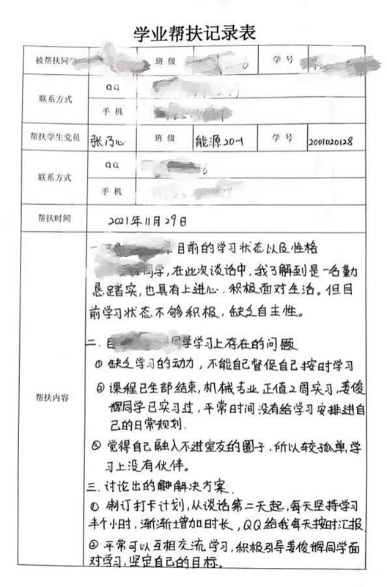 学业帮扶记录表
被帮扶同学 班级 学号
联系方式 QQ
手机
帮扶学生党员 张乃心 班级 能源20-1 学号 2001020128
联系方式 QQ
手机
帮扶时间 2021年11月29日
帮扶内容
一. 目前的学习状态以及性格
同学,在此次谈话中,我了解到是一名勤
恳踏实,也具有上进心.积极面对生活。但目
前学习状态不够积极,缺乏自主性。
二. 自 同学学习上存在的问题
① 缺乏学习的动力,不能自己督促自己按时学习
② 课程已全部结束,机械专业正值2周实习,姜俊
同学已实习过,平常时间没有给学习安排进自
己的日常规划.
③ 觉得自己融入不进室友的圈子,所以较孤单,学
习上没有伙伴。
三. 讨论出的解决方案.
① 制订打卡计划,从谈话第二天起,每天坚持学习
半个小时,渐渐增加时长,QQ给我每天按时汇报.
② 平常可以互相交流学习,积极引导姜俊 同学面
对学习,坚定自己的目标。